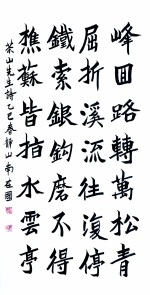 峰回路轉萬松青
屈折溪流往復停
鐵索銀鈎磨不得
樵蘇皆指水雲亭
茶山先生詩乙巳春靜山南在國